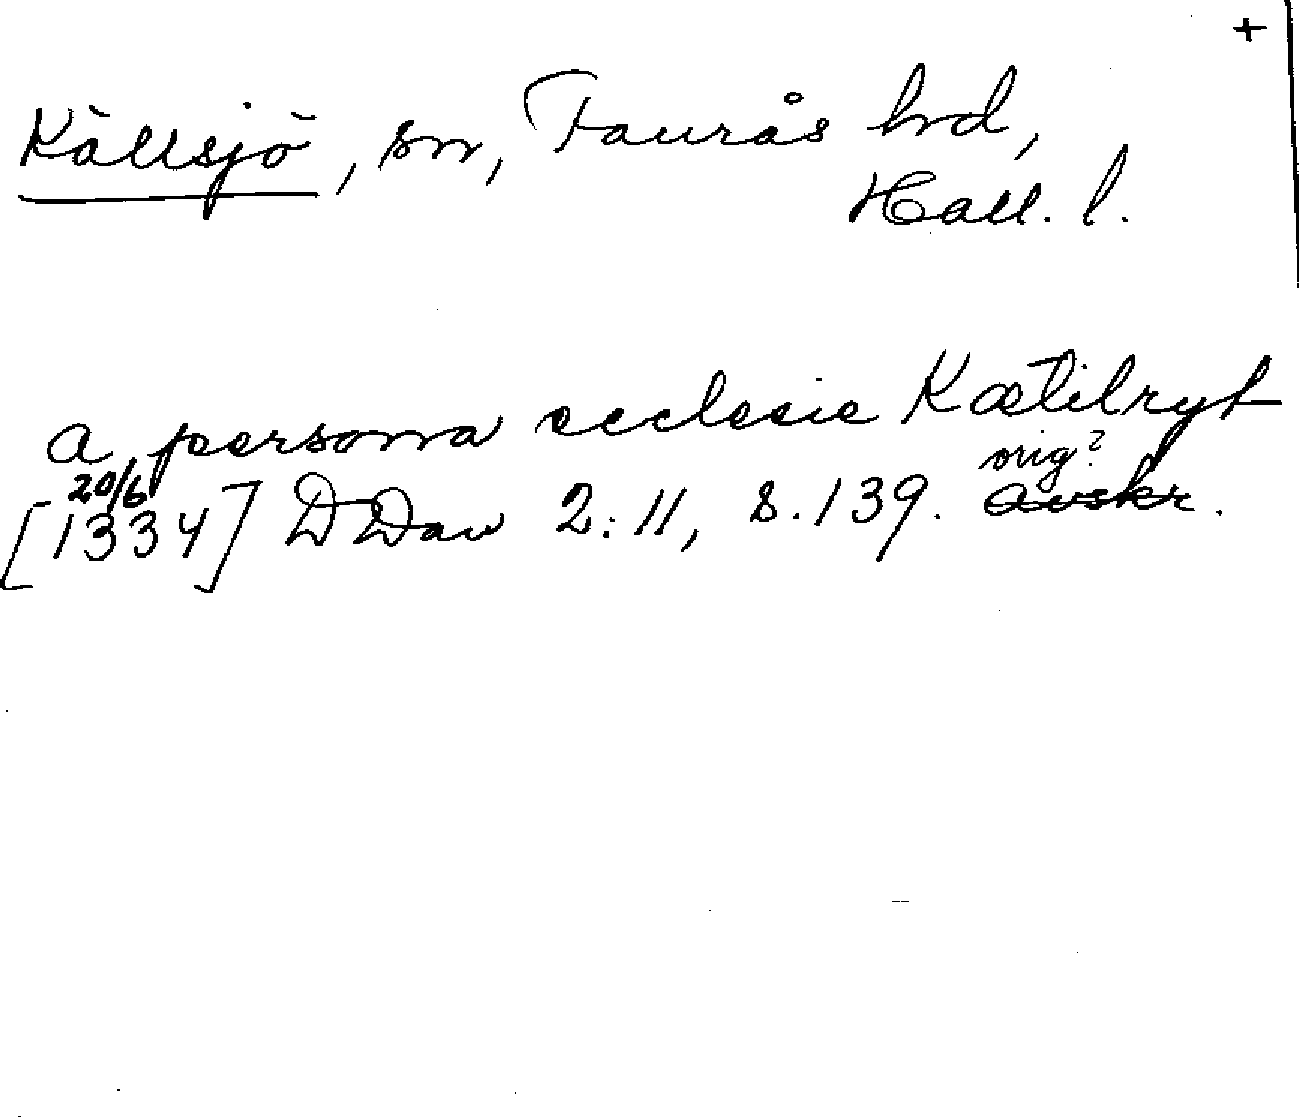 +
Källsjö, sn, Faurås hd,
Hall. l.
a persona ecclesie Kætilryt
orig?
[1334] 20/6 DDan 2:11, s. 139. avskr.